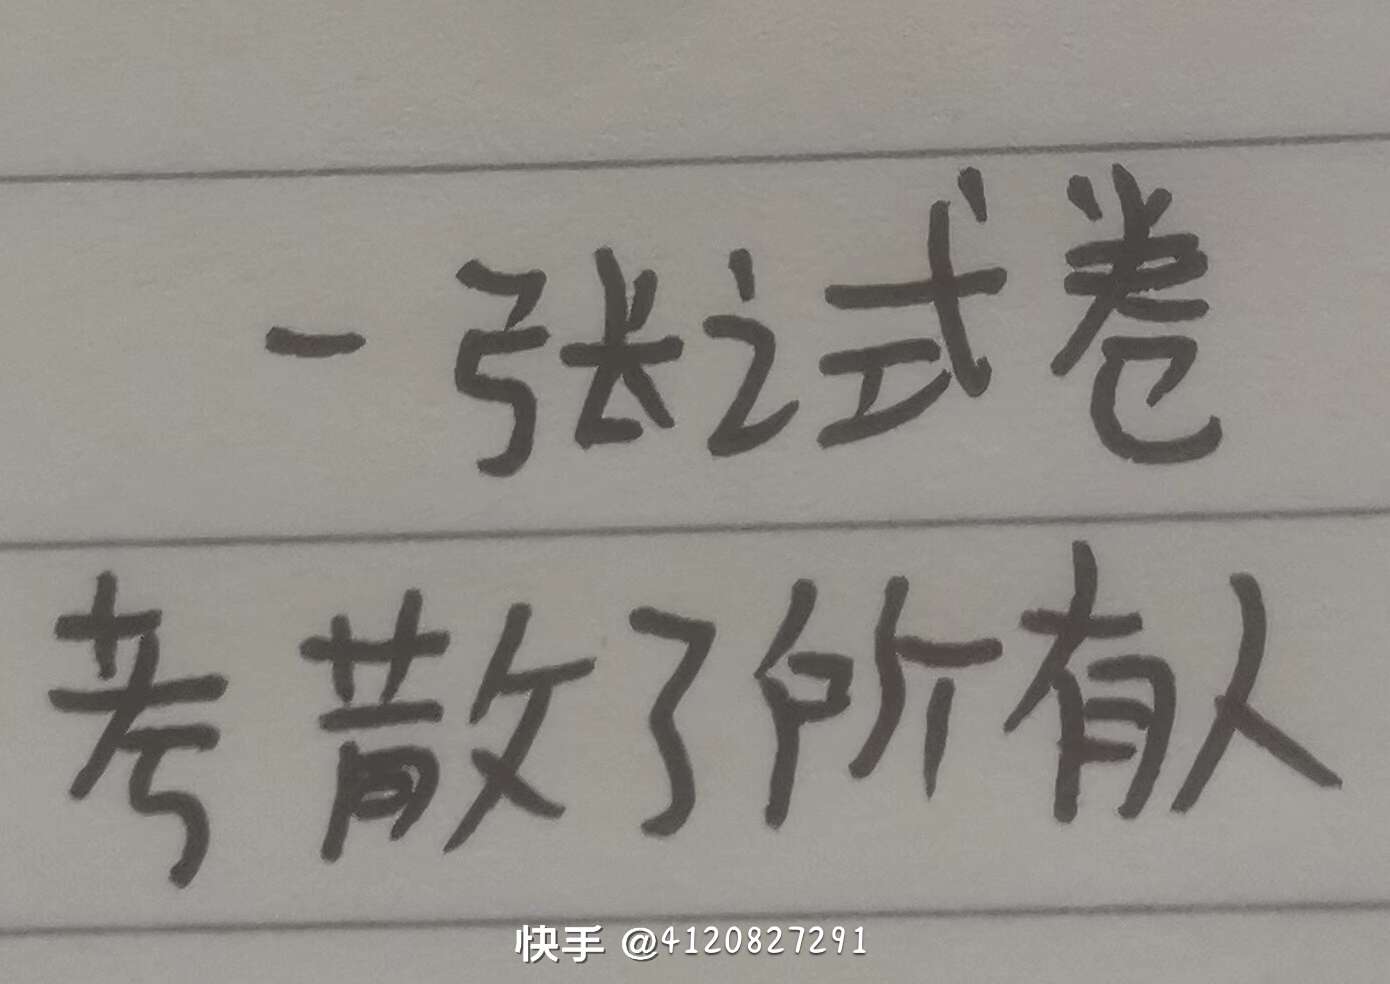 一张试卷
考散了所有人
快手 @4120827291